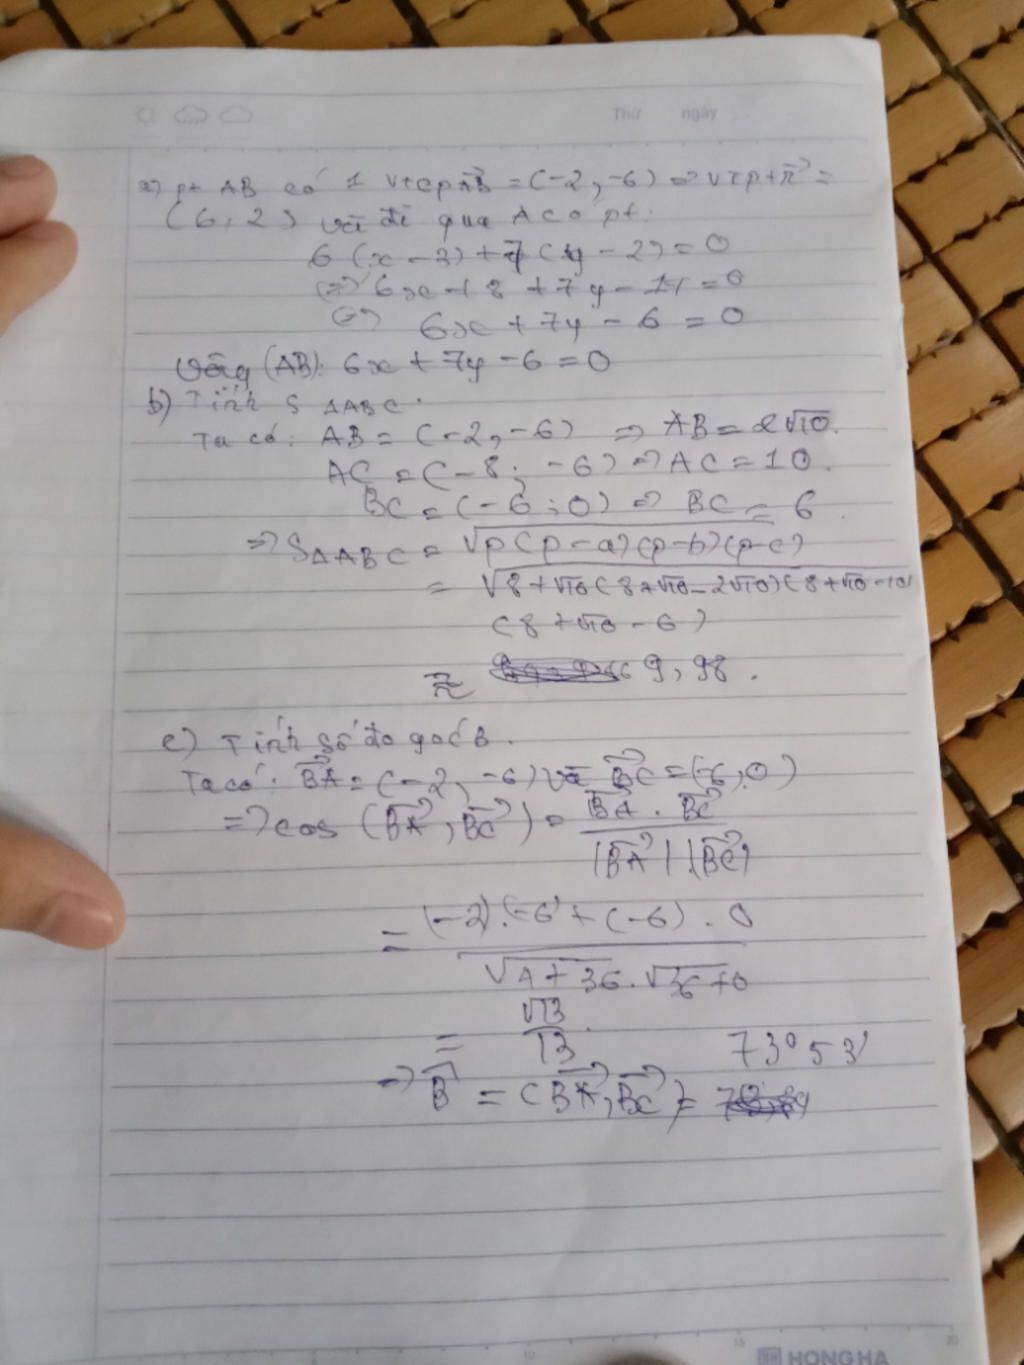 Thứ ngày
a) pt AB có 1 vtcp AB = (-2, -6) => vtpt n =
(6, 2) và đi qua A có pt:
6(x - 3) + 7(y - 2) = 0
(=) 6x - 18 + 7y - 14 = 0
(=) 6x + 7y - 6 = 0
Vậy (AB): 6x + 7y - 6 = 0
b) Tính S ΔABC.
Ta có: AB = (-2, -6) => AB = 2√10.
AC = (-8; -6) => AC = 10.
BC = (-6; 0) => BC = 6.
=> SΔABC = √p(p-a)(p-b)(p-c)
= √8+√10(8+√10-2√10)(8+√10-10)
(8+√10-6)
≈ 9,98.
c) Tính số đo góc B.
Ta có: BA = (-2, -6) và BC = (-6, 0)
=> cos (BA, BC) = BA . BC / |BA|.|BC|
= (-2).(-6) + (-6).0 / √4+36.√36+0
= √13 / 13
=> B = (BA, BC) = 73°53'
HONG HA